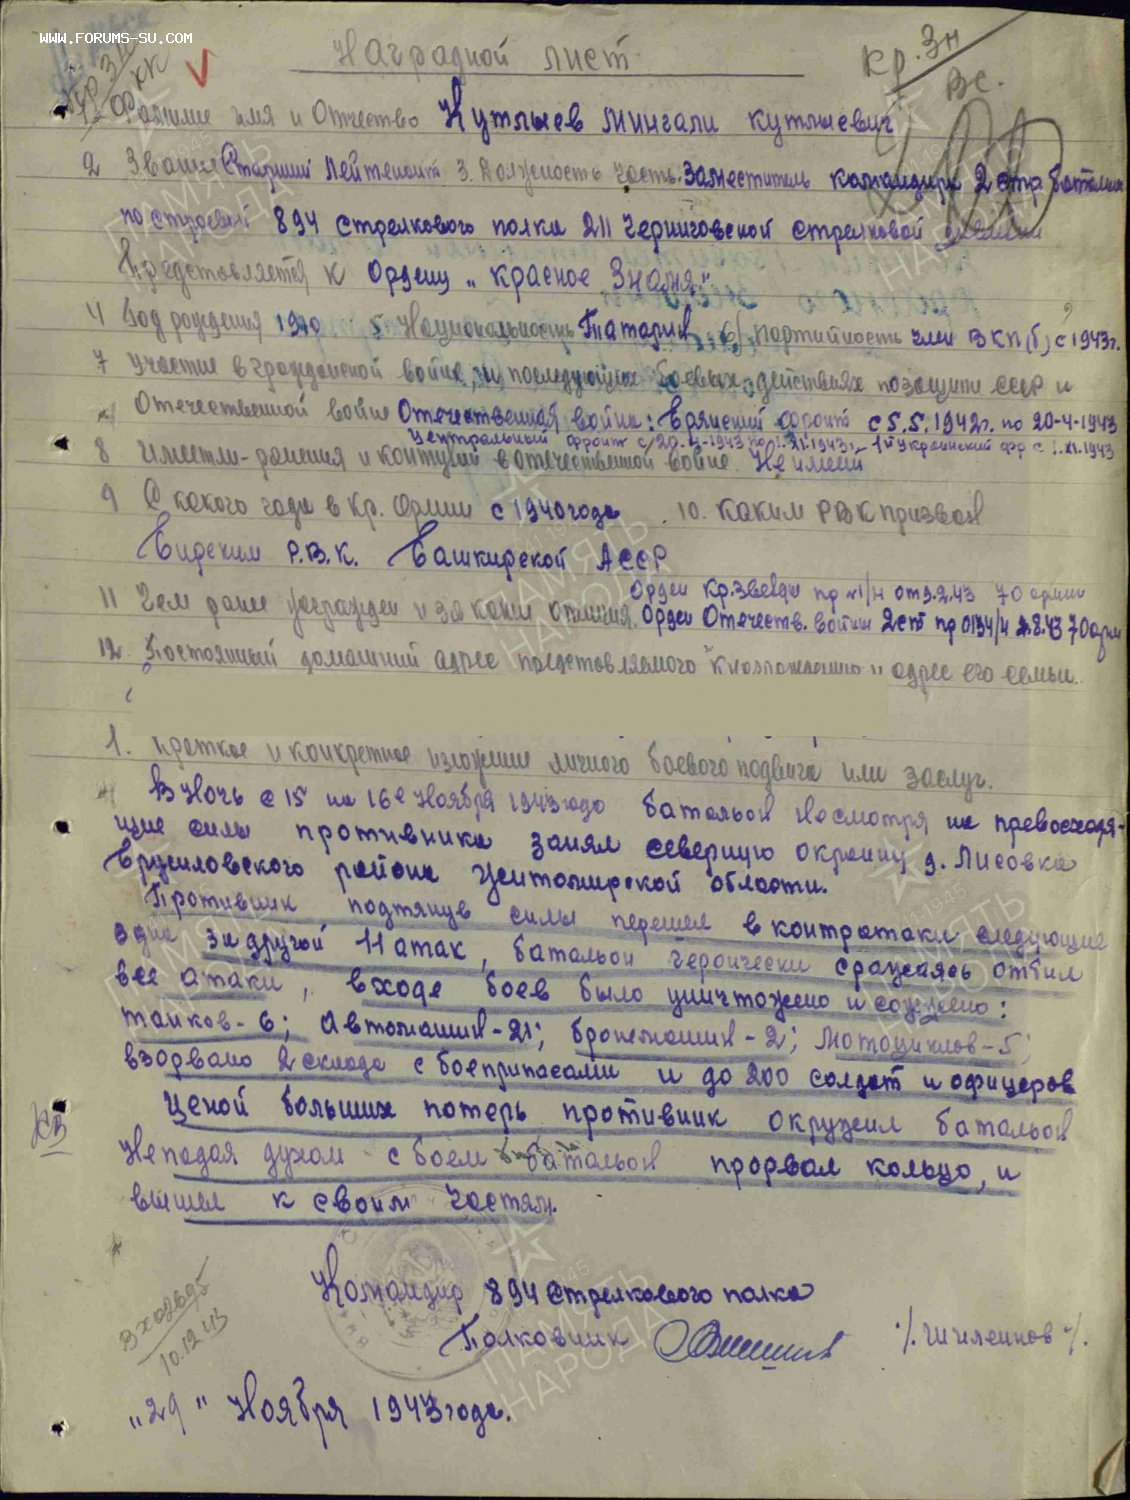 WWW.FORUMS-SU.COM
Наградной лист
Кр. Зн
Вс.
Фамилие имя и Отчество Кутлыев Мингали Кутлыевич
2 Звание Старший Лейтенант 3. Должность часть. Заместитель командира 2 стр. батальон
по строевой 894 стрелкового полка 211 Черниговской стрелковой дивизии
Представляется к Ордену „Красное Знамя"
4 Год рождения 1910 5 Национальность Татарин 6) Партийность член ВКП(б) с 1943г.
7 Участие в гражданской войне, и последующих боевых действиях по защити СССР и
Отечественной войне Отечественная война: Брянский фронт с 5.5.1942г. по 20-4-1943
Центральный фронт с 20.4-1943 по 1.XI.1943г. 1й Украинский фр с 1.XI.1943
8 Имеет ли ранения и контузии в отечественной войне Не имеет
9 С какого года в Кр. Армии с 1940 года 10. Каким РВК призван
Р.В.К. Башкирской АССР
Орден Кр. Звезды пр №1/н от 3.2.43 70 армии
11 Чем ранее награжден и за какие отличия. Орден Отечеств. войны 2 ст пр 0134/н 2.8.43 70 арм
12. Постоянный домашний адрес представляемого к награждению и адрес его семьи.
1. Краткое и конкретное изложение личного боевого подвига или заслуг.
В Ночь с 15 на 16е Ноября 1943 года батальон несмотря на превосходя-
щие силы противника занял северную окраину д. Лисовка
Брусиловского района Житомирской области.
Противник подтянув силы перешел в контратаки следующие
одна за другой 11 атак, батальон героически сражаясь отбил
все атаки, в ходе боев было уничтожено и сожжено:
танков - 6; Автомашин - 21; бронемашин - 2; Мотоциклов - 5;
взорвано 2 склада с боеприпасами и до 200 солдат и офицеров
Ценой больших потерь противник окружил батальон
Не падая духом с боем батальон прорвал кольцо, и
вышел к своим частям.
КЗ
Командир 894 стрелкового полка
Полковник /. Шиленков /.
Вх 02695
10.12.43
„29" Ноября 1943 года.
ПАМЯТЬ НАРОДА